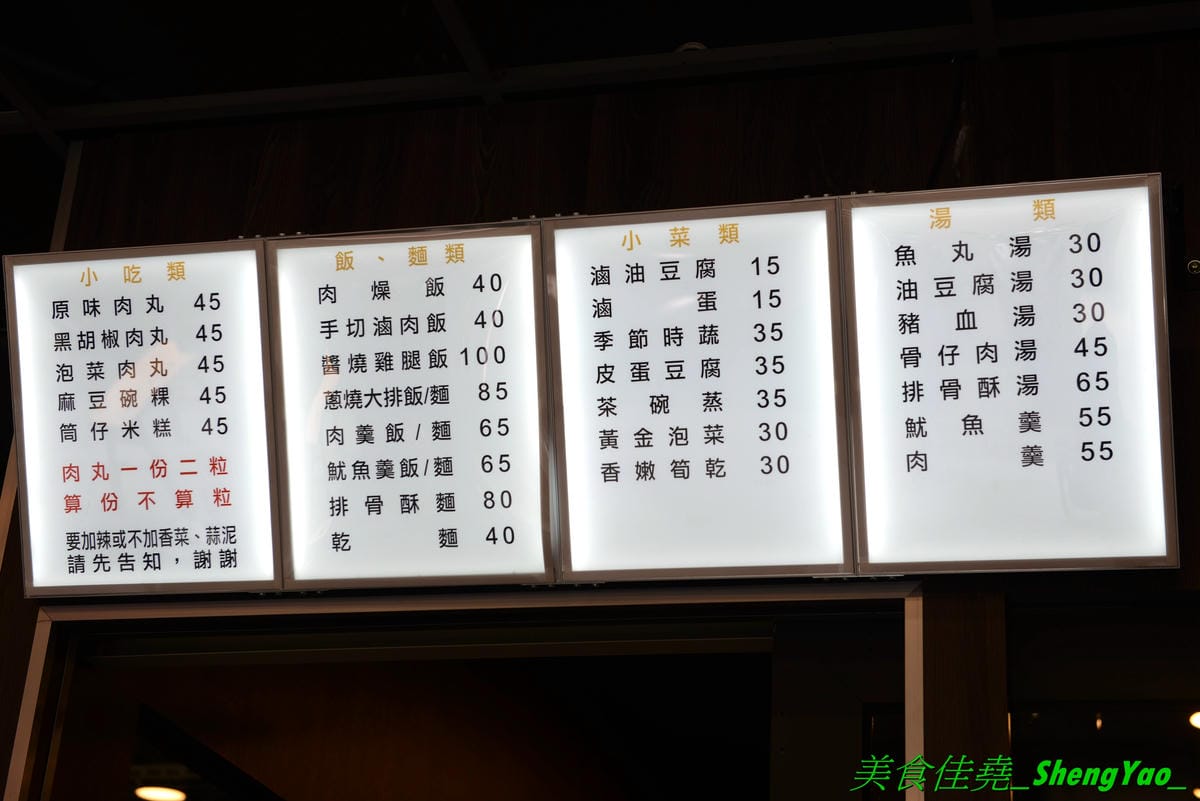 小吃類
原味肉丸 45
黑胡椒肉丸 45
泡菜肉丸 45
麻豆碗粿 45
筒仔米糕 45
肉丸一份二粒
算份不算粒
要加辣或不加香菜、蒜泥
請先告知，謝謝
飯、麵類
肉燥飯 40
手切滷肉飯 40
醬燒雞腿飯 100
蔥燒大排飯/麵 85
肉羹飯/麵 65
魷魚羹飯/麵 65
排骨酥麵 80
乾麵 40
小菜類
滷油豆腐 15
滷蛋 15
季節時蔬 35
皮蛋豆腐 35
茶碗蒸 35
黃金泡菜 30
香嫩筍乾 30
湯類
魚丸湯 30
油豆腐湯 30
豬血湯 30
骨仔肉湯 45
排骨酥湯 65
魷魚羹 55
肉羹 55
美食佳堯_ShengYao_